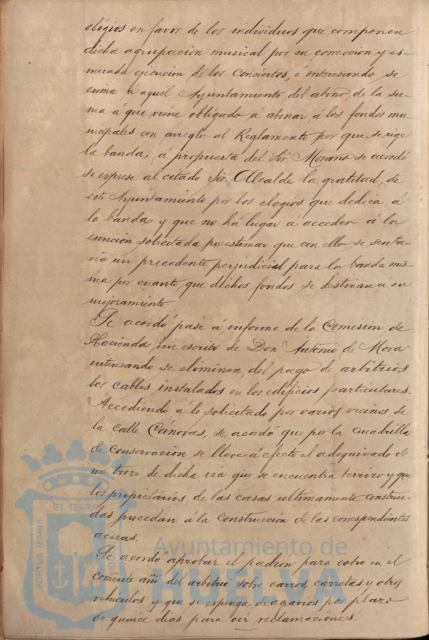 elógios en favor de los individuos que componen
dicha agrupacion musical por su correccion y es-
merada ejecucion de los Conciertos, é interesando se
exima á aquel Ayuntamiento del abono, de la su-
ma á que viene obligado á abonar á los fondos mu-
nicipales con arreglo al Reglamento por que se rige
la banda, á propuesta del Sr. Morano se acordó
se exprese al citado Sr. Alcalde la gratitud, de
este Ayuntamiento por los elogios que dedica á
la banda y que no há lugar á acceder á la
exencion solicitada por estimar que con ello se senta-
ria un precedente perjudicial para la banda mis-
ma por cuanto que dichos fondos se destinan á su
mejoramiento.
Se acordó pase á informe de la Comision de
Hacienda un escrito de Don Antonio de Mora
interesando se eliminen del pago de arbitrios
los cables instalados en los edificios particulares.
Accediendo á lo solicitado por varios vecinos de
la calle Cánovas, se acordó que por la cuadrilla
de Conservacion se lleve á efecto el adoquinado de
un trozo de dicha via que se encuentra terrizo y que
los propietarios de las casas ultimamente construi-
das procedan á la construccion de las correspondientes
aceras.
Se acordó aprobar el padron para cobro en el
corriente año del arbitrio sobre carros, carretas y otros
vehiculos y que se exponga de agravios por plazo
de quince dias para oir reclamaciones.
PORTUS MARIS
ET TERRAE
Ayuntamiento de
HUELVA